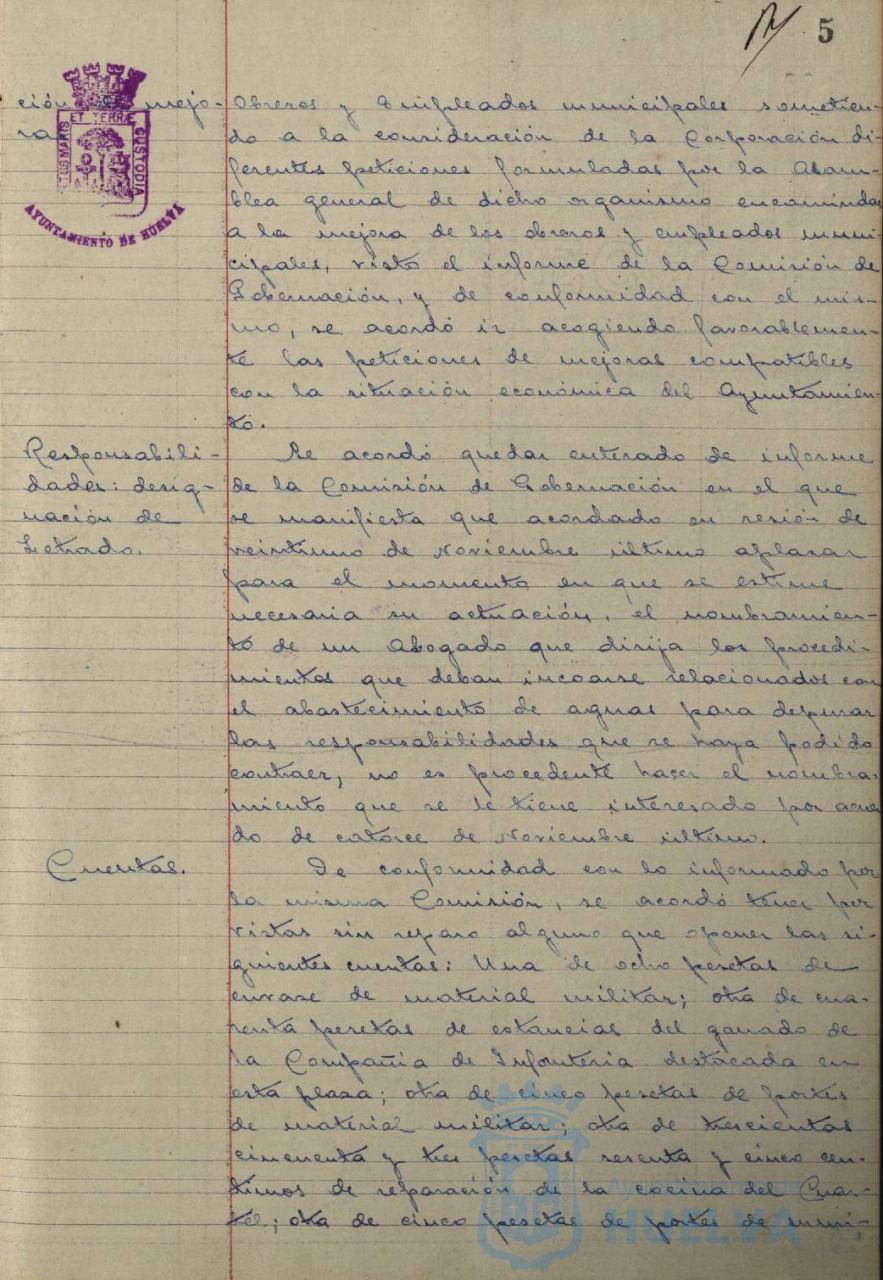 5
ción de mejo-
ra
ET TERRÆ
CUSTODIA
PORTUS MARIS
AYUNTAMIENTO DE HUELVA
Obreros y Empleados municipales sometien-
do a la consideración de la Corporación di-
ferentes peticiones formuladas por la Asam-
blea general de dicho organismo encaminadas
a la mejora de los obreros y empleados muni-
cipales, visto el informe de la Comisión de
Gobernación, y de conformidad con el mis-
mo, se acordó ir acogiendo favorablemen-
te las peticiones de mejoras compatibles
con la situación económica del Ayuntamien-
to.
Responsabili-
dades: desig-
nación de
Letrado.
Se acordó quedar enterado de informe
de la Comisión de Gobernación en el que
se manifiesta que acordado en sesión de
veintiuno de Noviembre último aplazar
para el momento en que se estime
necesaria su actuación, el nombramien-
to de un Abogado que dirija los procedi-
mientos que deban incoarse relacionados con
el abastecimiento de aguas para depurar
las responsabilidades que se haya podido
contraer, no es procedente hacer el nombra-
miento que se le tiene interesado por acuer
do de catorce de Noviembre último.
Cuentas.
De conformidad con lo informado por
la misma Comisión, se acordó tener por
vistas sin reparo alguno que oponer las si-
guientes cuentas: Una de ocho pesetas de
envase de material militar; otra de cua-
renta pesetas de estancias del ganado de
la Compañia de Infanteria destacada en
esta plaza; otra de cinco pesetas de portes
de material militar; otra de trescientas
cincuenta y tres pesetas sesenta y cinco cen-
timos de reparación de la cocina del Cuar-
tel; otra de cinco pesetas de portes de muni-
Ayuntamiento de
HUELVA